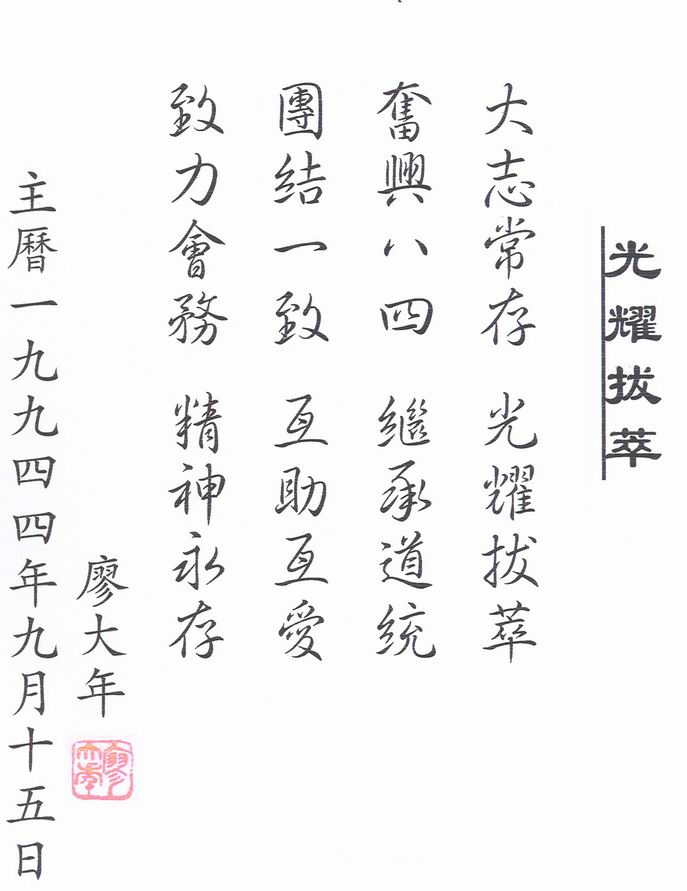 光耀拔萃
大志常存 光耀拔萃
奮興八四 繼承道統
團結一致 互助互愛
致力會務 精神永存
廖大年
廖大年
主曆一九九四四年九月十五日